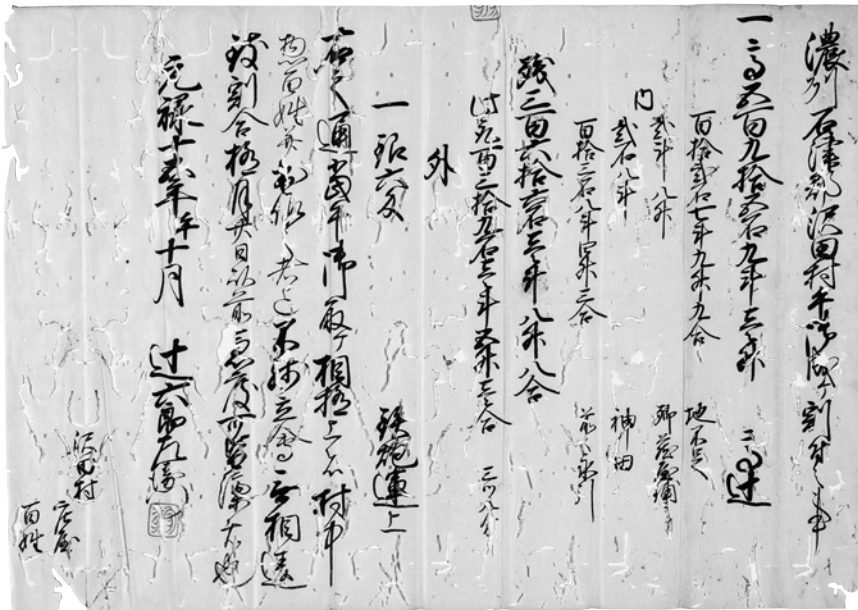 濃州石津郡沢田村午御成ケ割付之事
一高五百九拾五石九斗三升 辻
百拾弐石七斗九升九合 地不足
内
弐斗八升 郷蔵屋鋪
弐石八斗 神田
百拾三石八斗四升三合 前々永引
残三百六拾六石三斗八升八合
此 百三拾九石 斗五升 合 三ツ八分
外
一銀六匁 鉄砲運上
右之通当午御取ケ相極上ハ村中
惣百姓并 作之者迄不残立会無相違
致割合極月廿日以前急度可皆済者也
元禄十五年午十月 辻六郎左衛門
沢田村
庄屋
百姓